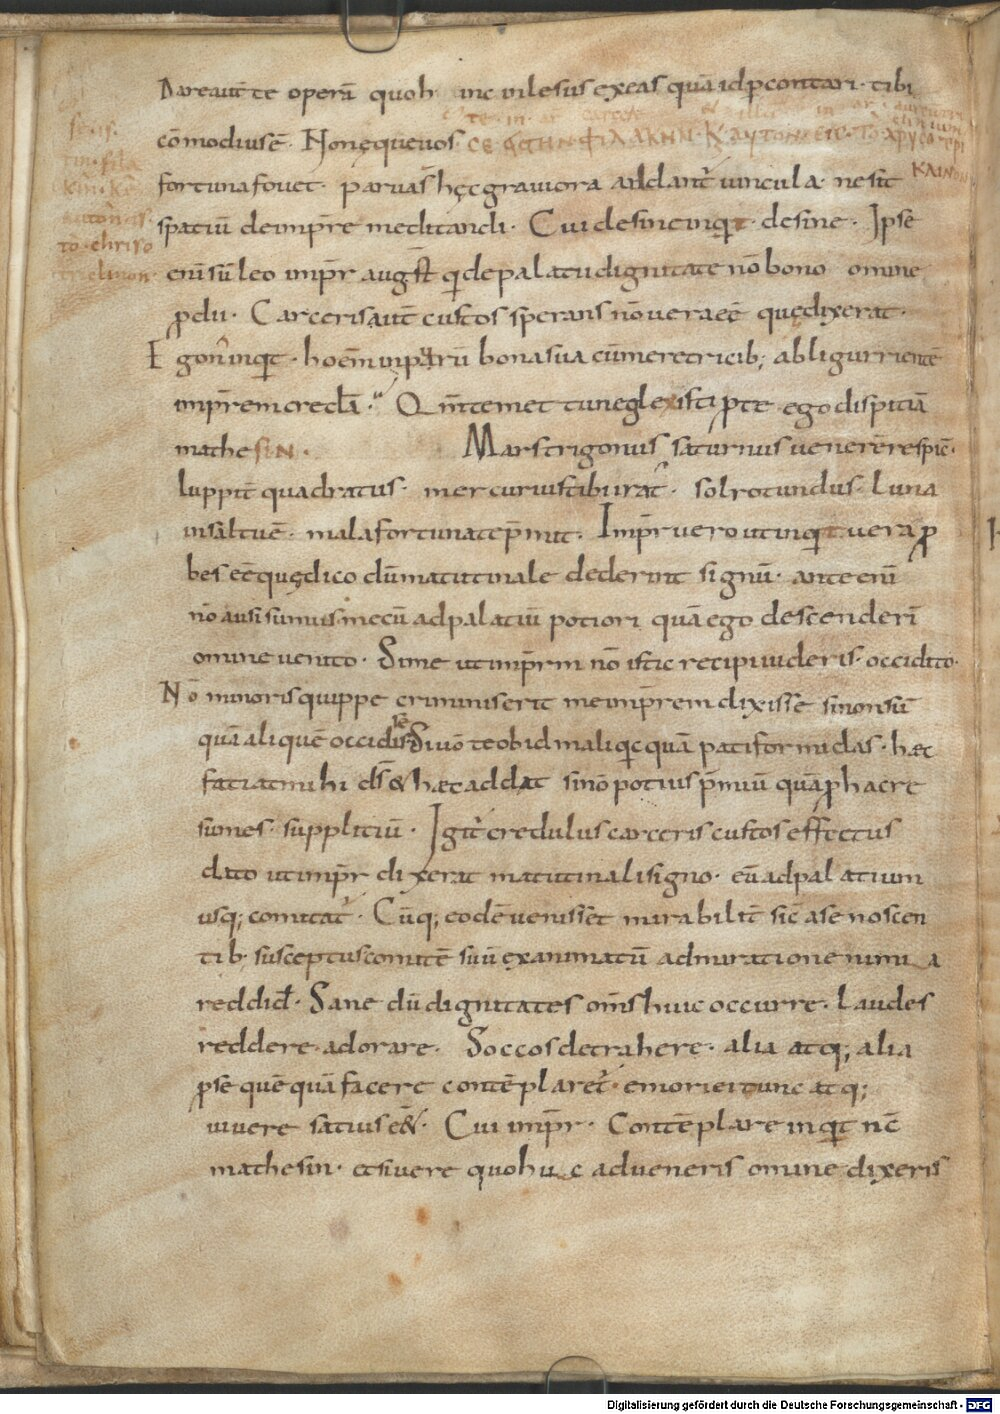 Dareaut̄ te operā quoh inc inlesus exeas quā idpcontari · tibi
cōmodius ē · Non ęque uos · ΣΕ ϚΤΗΝ ΦΙΛΑΚΗΝ · Κ ΑΥΤΟΝ ΕΙC · ΤΟ ΧΡΥCO ΤΡΙ
ΚΛΙΝΟΝ
fortuna fouet · paruas hęc grauiora addant᷑ uincula · ne sit
spatiū de imp̄re meditandi · Cui desine inquit · desine · Ipse
enī sū leo imp̄r augst̄ qͥ de palatii dignitate nō bono omine
pdii · Carceris aut̄ custos sperans nō uera eē quę dixerat ·
Ego n̄ inquit · hoēm inpͣtrū bona sua cū meretricib; abligurrientē
imp̄rem credā · Qm̄ temet tu neglexisti p te ego dispiciā
mathesin ·
Mars trigonus saturnus uenerē respic̄ ·
Iuppit̄ quadratus · mercurius tibi irat᷑ · sol rotundus · Luna
in saltu ē · mala fortuna te p̄mit · Imp̄r uero ut inquit uera pro
bes eē quę dico dū matutinale dederint signū · ante enī
nō ausi sumus · mecū ad palatiū potiori quā ego descenderī
omine uenito · Si me ut imp̄rm nō istic recipi uideris · occidito ·
Nō minoris quippe criminis erit me imp̄rem dixisse si non sū
quā aliquē occidisse Si uō te ob id mali qͥc quā pati formidas · hæc
faciat mihi dſ & hæc addat si nō potius p̄miū quā p hac re
sumes · suppliciū · Igit᷑ credulus carceris custos effectus
dato ut imp̄r dixerat matutinali signo · eū ad palatium
usq; comitat᷑ · Cūq; eodē uenisset mirabilit̄ sic̄ a se noscen
tib · susceptus comitē suū exanimatū admiratione nimia
reddid̄ · Sane dū dignitates om̄s huic occurre · Laudes
reddere · adorare · Soccos detrahere · alia atq; alia
p se quēquā facere contēplaret᷑ · emoriei tunc atq;
uiuere satius eēt · Cui imp̄r · Contēplare inquit nc̄
mathesin · et si uere quo huc adueneris omine dixeris
se · is ·
tin · fila
kin · kē
auton · is ·
to · chriso
triclinon ·